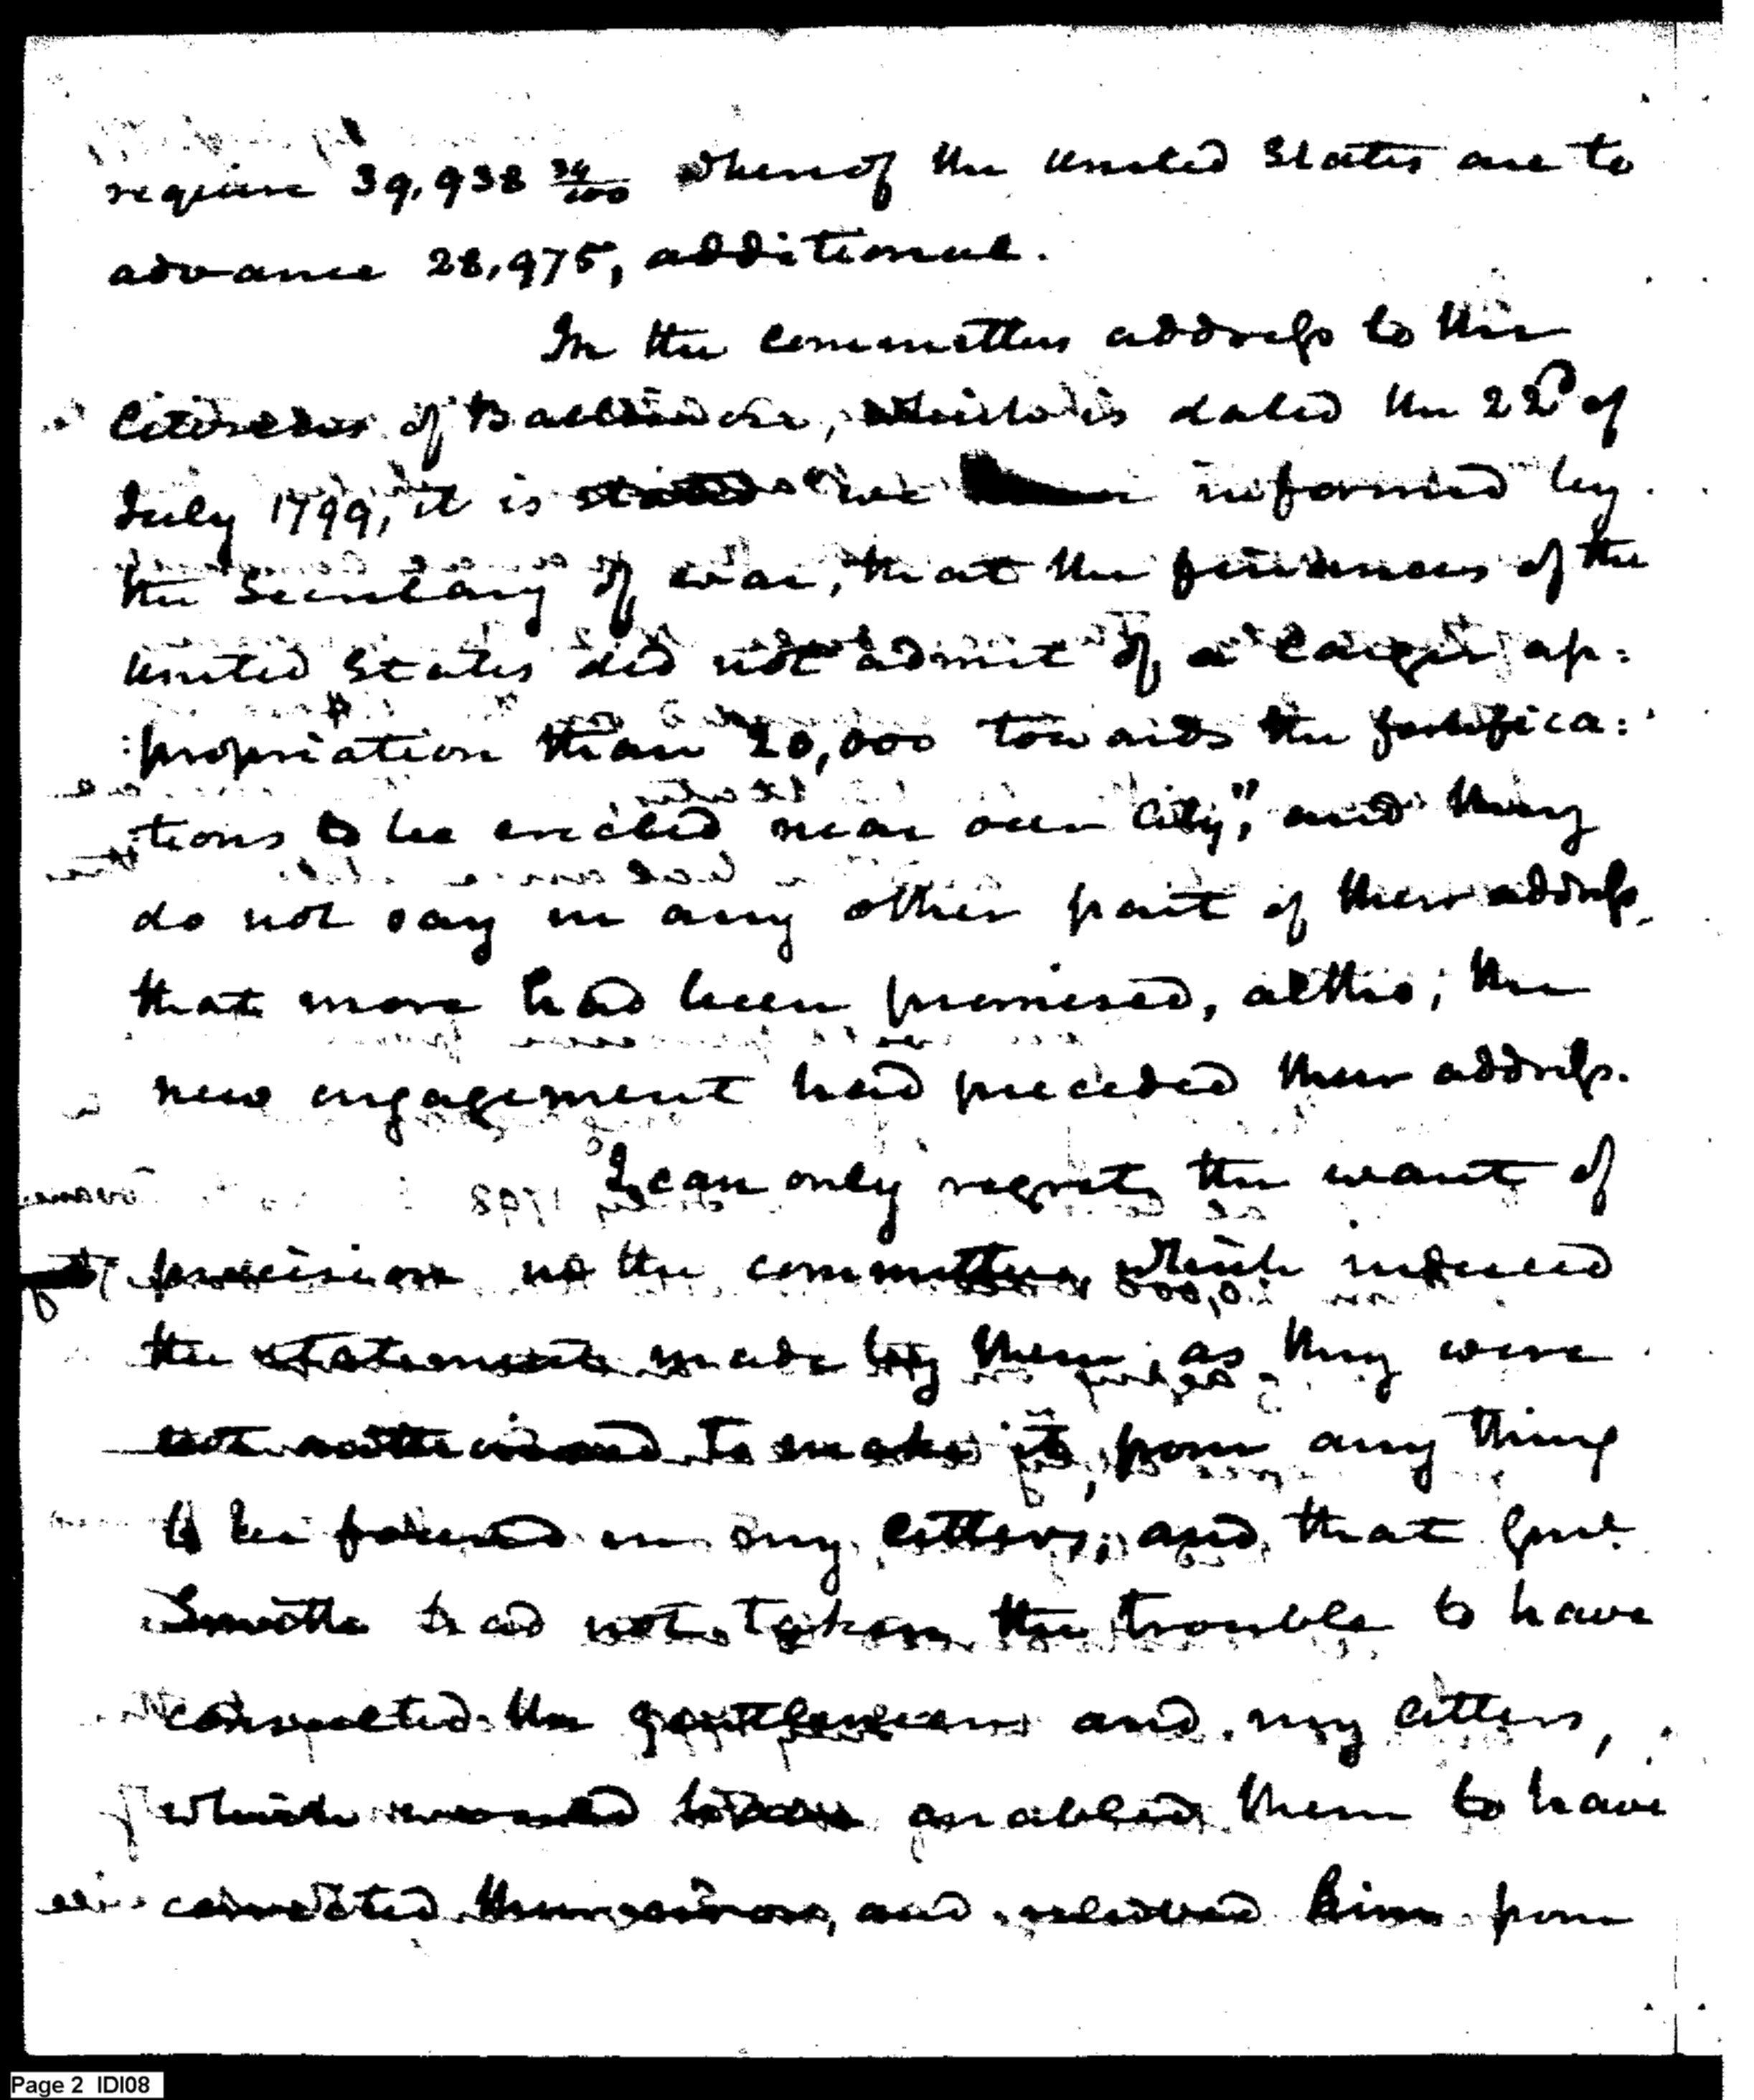 require 39,938 34/100 whereof the United States are to
advance 28,975, additional.
In the committees address to the
Citizens of Baltimore, which is dated the 22d of
July 1799, it is stated "we informed by
the Secretary of war, that the finances of the
United States did not admit of a larger ap:
:propriation than 20,000 towards the fortifica:
:tions to be erected near our City", and they
do not say in any other part of their address,
that more had been promised, altho; the
new engagement had preceded their address.
I can only regret, the want of
precision in the committee, which induced
the statement made by them; as they were
not authorised to make it, from any thing
to be found in my letters; and, that Genl.
Smith had not taken the trouble to have
consulted the gentlemen and my letters,
which would have enabled them to have
corrected their errors, and relieved him from
Page 2 IDI08